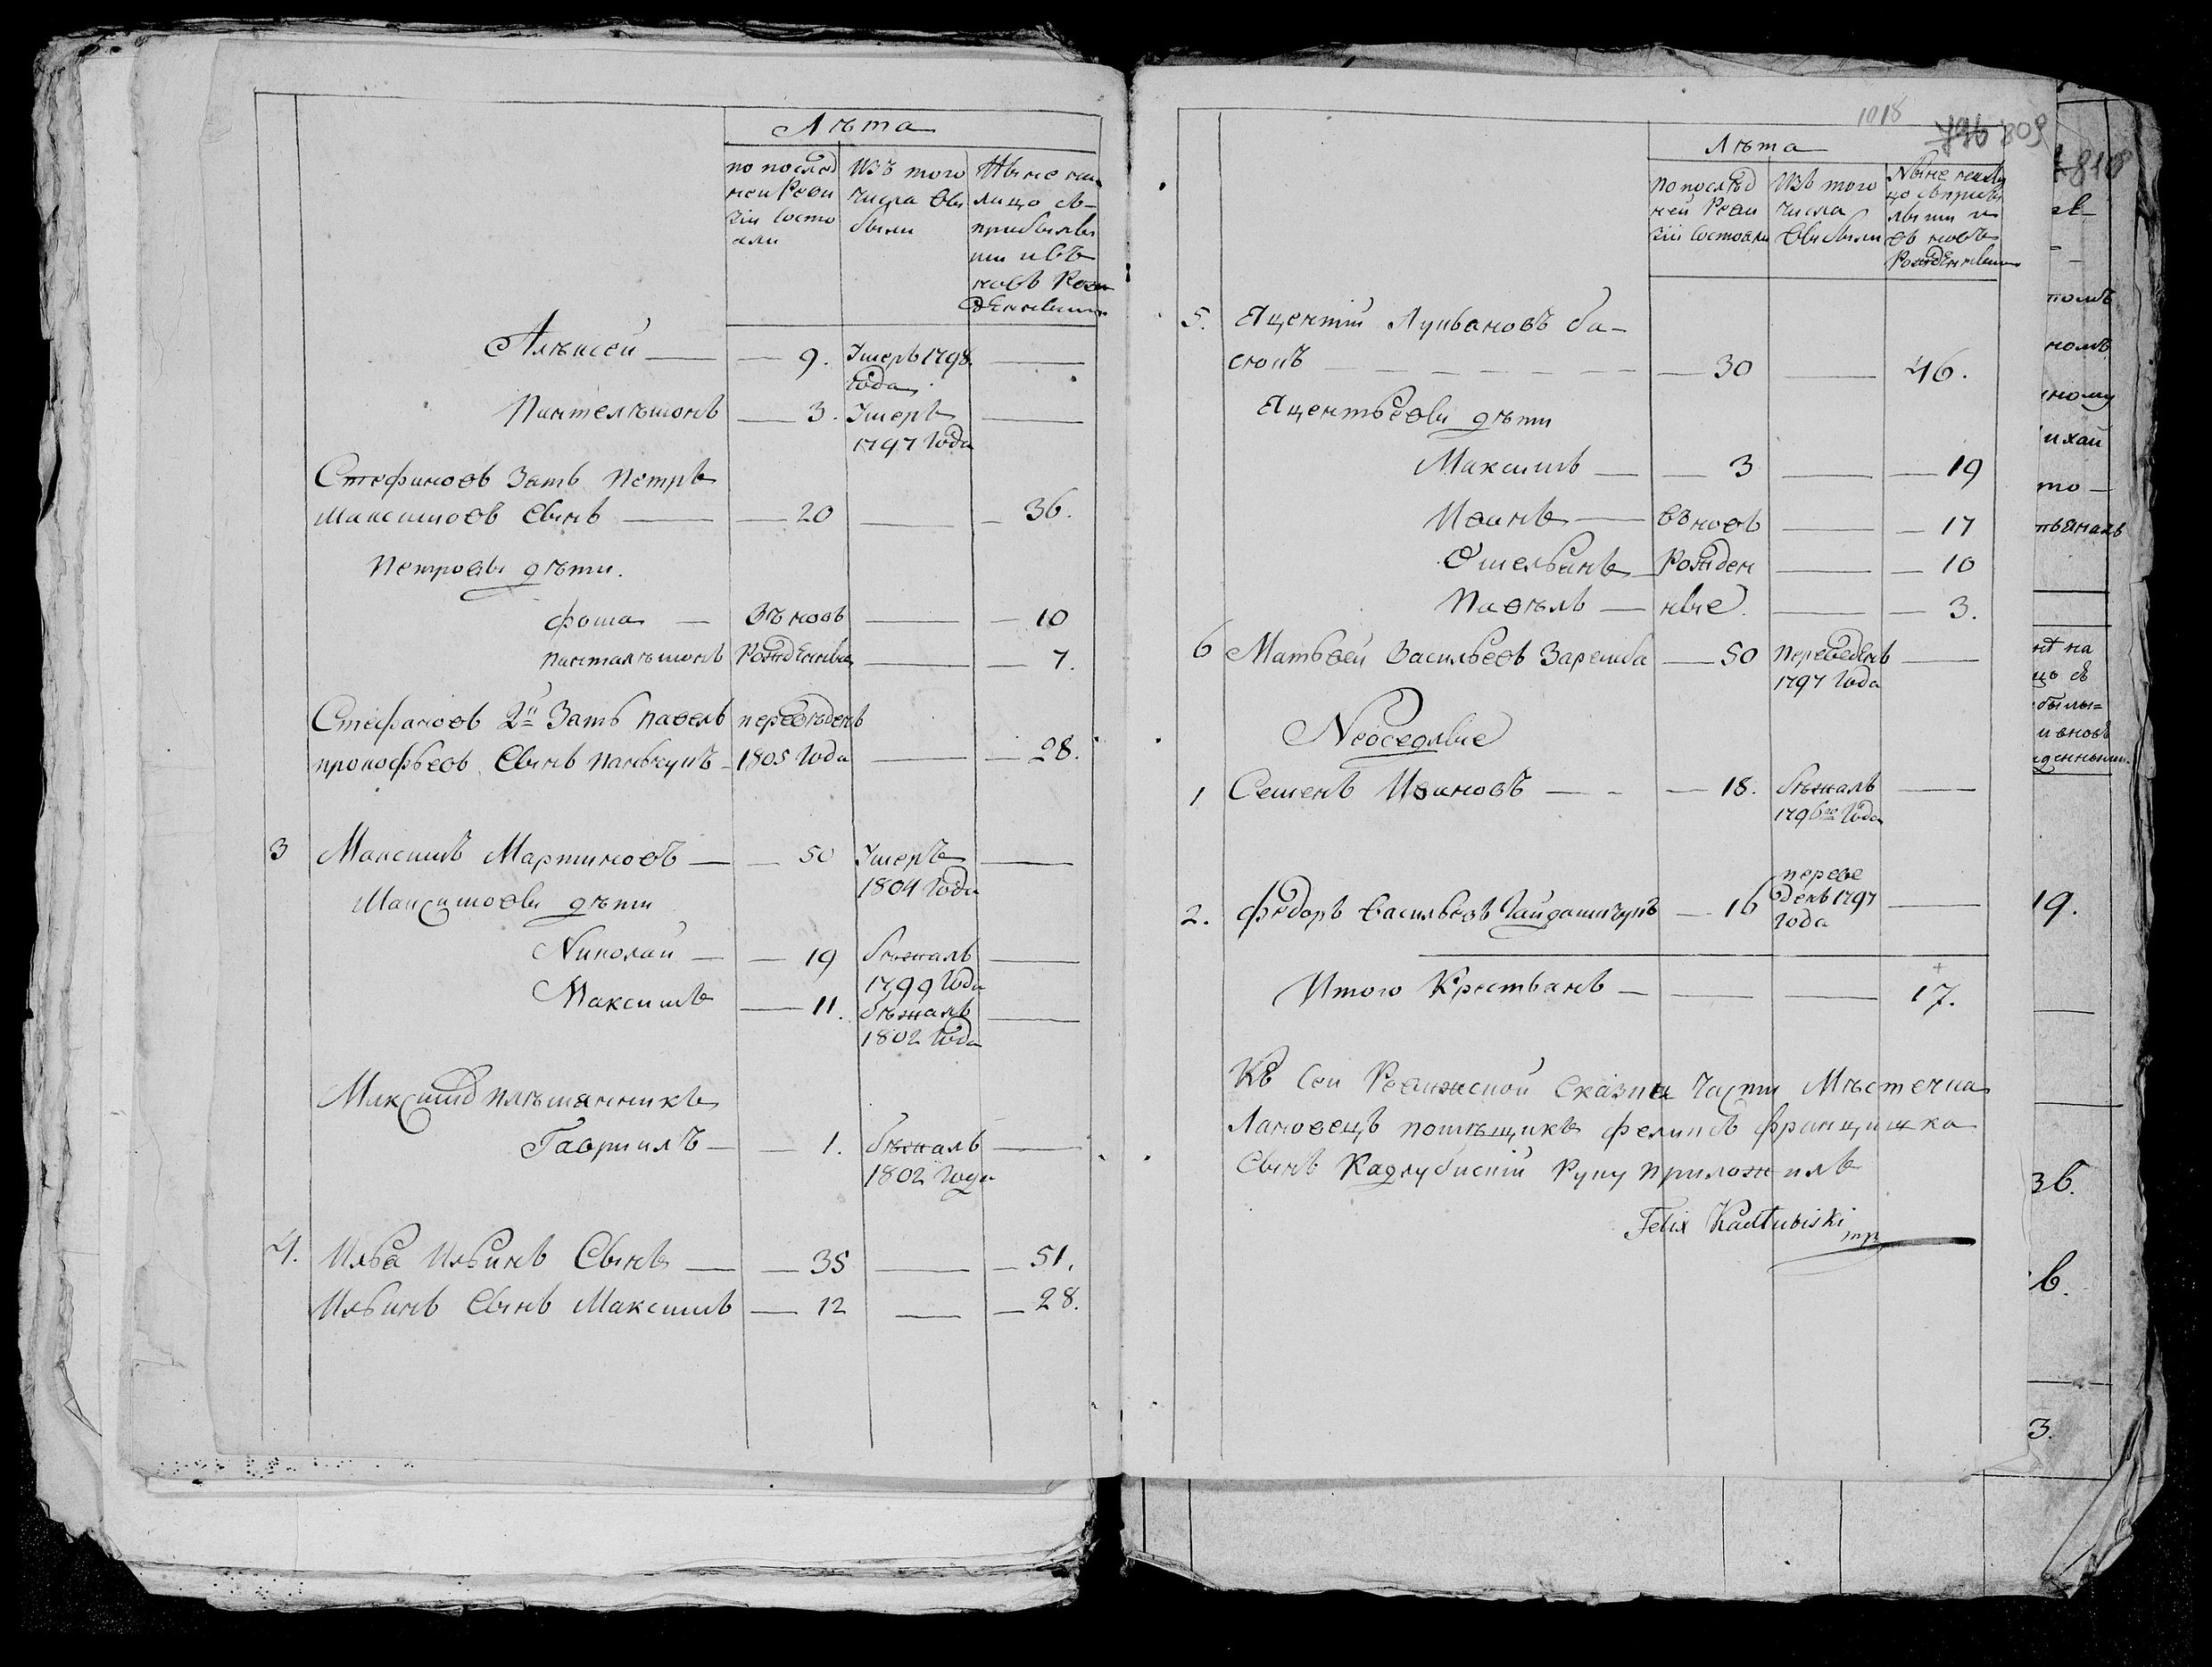 Лѣта
по послѣд Изъ того Ныне на
ней Реви числа вы лицо съ
зіи состо были прибылы
яли ми и въ
новъ Рож
денными
Алѣксей — 9. Умеръ 1798. —
года
Пантелѣмонъ — 3. Умеръ —
1797 года
Стефановъ Зять Петръ
Максимовъ Сынъ — 20 — 36.
Петровы дѣти.
Фома — Въ новъ — 10
Панталѣмонъ Рожденные — 7.
Стефановъ 2й Зять Павелъ перевѣденъ
Прокофьевъ Сынъ 1805 года — 28.
3 Максимъ Мартиновъ — 50 Умеръ —
1804 года
Максимовы дѣти
Николай — 19 бѣжалъ —
1799 года
Максимъ — 11. бѣжалъ —
1802 года
Максима племянникъ
Гавриилъ — 1. бѣжалъ —
1802 года
4. Илья Ильинъ Сынъ — 35 — 51.
Ильинъ Сынъ Максимъ — 12 — 28.
1018
796 809
Лѣта
По послѣд Изъ того Ныне на ли
ней Реви числа цо съ прибы
зіи состояли выбыли лыми и
въ новъ
Рожденными
5. Яцентій Лукьановъ ба-
сюкъ — 30 — 46.
Яцентьевы дѣти
Максимъ — 3 — 19
Иванъ — въ новъ — 17
Омельанъ — Рожден — 10
Павелъ — ные — 3.
6 Матьвей Васильевъ Заремба — 50 Переведенъ —
1797 года
Неоседлые
1 Семенъ Ивановъ — 18. бѣжалъ —
1796го года
переве
2. Федоръ Васильевъ Гайдамачукъ — 16 денъ 1797 —
года
Итого Крестьанъ — 17.
Къ сей Ревижской Сказки части Мѣстечка
Лановецъ помѣщикъ Феликсъ Францишка
Сынъ Кадлубискій Руку приложилъ
Felix Kadłubiski
mp
810
номъ
ному
ихай
то —
тьяналъ
нѣ на
цо съ
былы=
и вновь
жденными.
19.
36.
3.